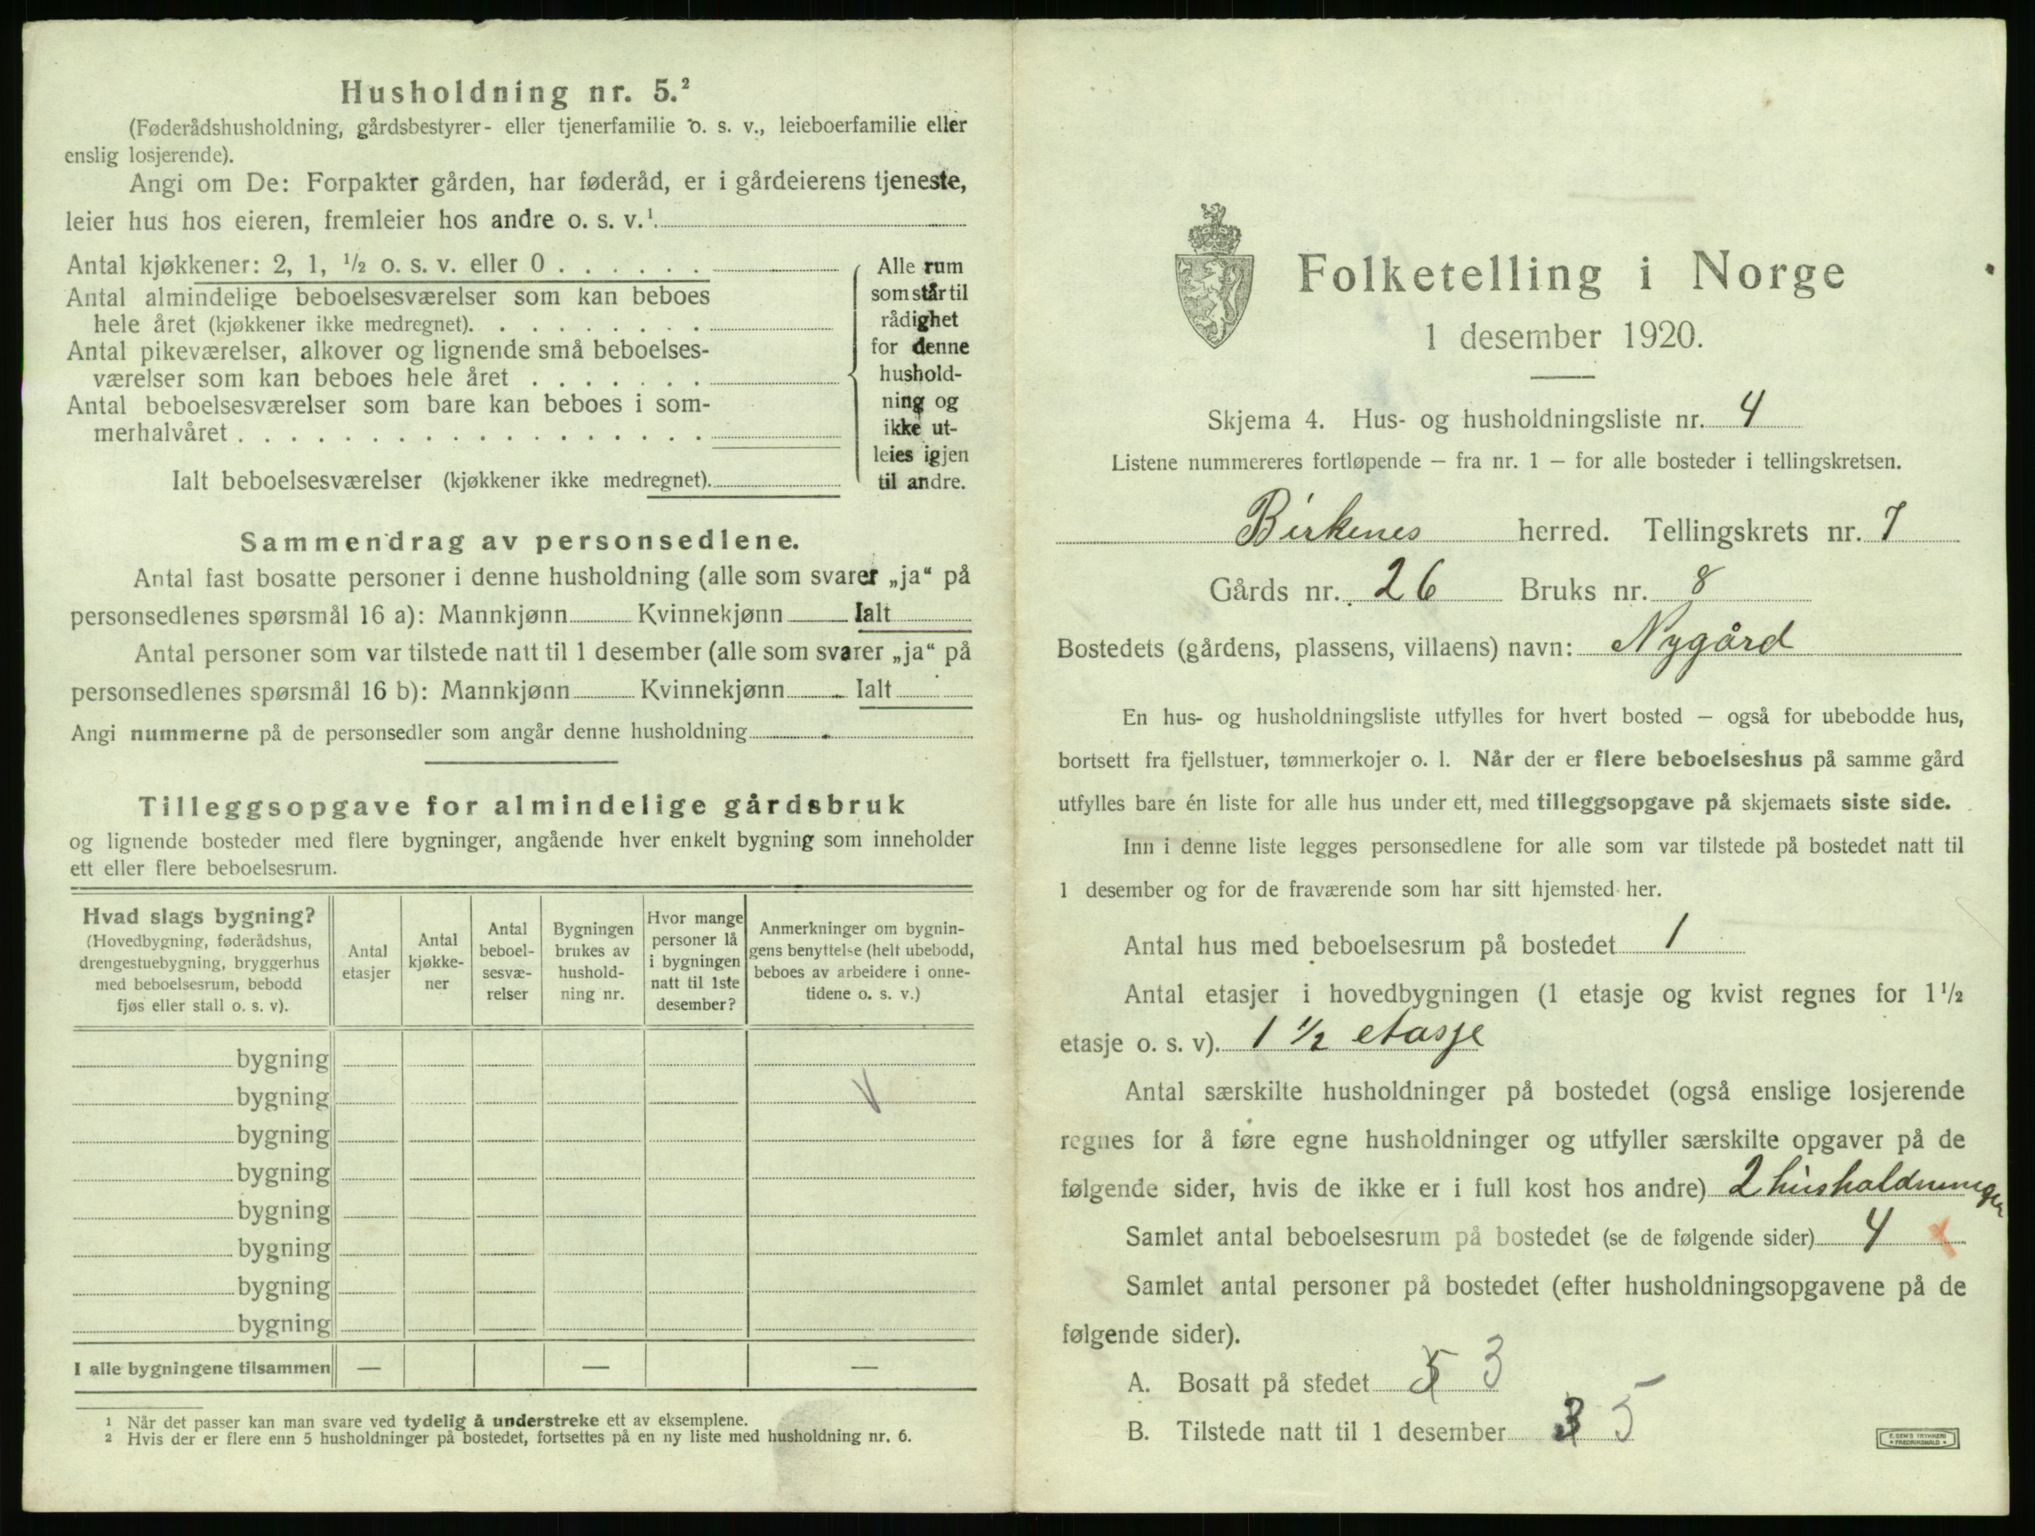 Husholdning nr. 5.²
(Føderådshusholdning, gårdsbestyrer- eller tjenerfamilie o. s. v., leieboerfamilie eller
enslig losjerende).
Angi om De: Forpakter gården, har føderåd, er i gårdeierens tjeneste,
leier hus hos eieren, fremleier hos andre o. s. v.¹
Antal kjøkkener: 2, 1, ½ o. s. v. eller 0 . . . . . .
Antal almindelige beboelsesværelser som kan beboes
hele året (kjøkkener ikke medregnet). . . . . . . . .
Antal pikeværelser, alkover og lignende små beboelses-
værelser som kan beboes hele året . . . . . . .
Antal beboelsesværelser som bare kan beboes i som-
merhalvåret . . . . . . . . . . . . . . . . . .
Ialt beboelsesværelser (kjøkkener ikke medregnet).
Alle rum
som står til
rådighet
for denne
hushold-
ning og
ikke ut-
leies igjen
til andre.
Sammendrag av personsedlene.
Antal fast bosatte personer i denne husholdning (alle som svarer „ja“ på
personsedlenes spørsmål 16 a): Mannkjønn Kvinnekjønn Ialt
Antal personer som var tilstede natt til 1 desember (alle som svarer „ja“ på
personsedlenes spørsmål 16 b): Mannkjønn Kvinnekjønn Ialt
Angi nummerne på de personsedler som angår denne husholdning
Tilleggsopgave for almindelige gårdsbruk
og lignende bosteder med flere bygninger, angående hver enkelt bygning som inneholder
ett eller flere beboelsesrum.
Hvad slags bygning?
(Hovedbygning, føderådshus,
drengestuebygning, bryggerhus
med beboelsesrum, bebodd
fjøs eller stall o. s. v).
Antal
etasjer
Antal
kjøkke-
ner
Antal
beboel-
sesvæ-
relser
Bygningen
brukes av
hushold-
ning nr.
Hvor mange
personer lå
i bygningen
natt til 1ste
desember?
Anmerkninger om bygnin-
gens benyttelse (helt ubebodd,
beboes av arbeidere i onne-
tidene o. s. v.)
bygning
bygning
bygning
bygning
bygning
bygning
bygning
bygning
I alle bygningene tilsammen — — —
¹ Når det passer kan man svare ved tydelig å understreke ett av eksemplene.
² Hvis der er flere enn 5 husholdninger på bostedet, fortsettes på en ny liste med husholdning nr. 6.
Folketelling i Norge
1 desember 1920.
Skjema 4. Hus- og husholdningsliste nr. 4
Listene nummereres fortløpende – fra nr. 1 – for alle bosteder i tellingskretsen.
Birkenes herred. Tellingskrets nr. 7
Gårds nr. 26 Bruks nr. 8
Bostedets (gårdens, plassens, villaens) navn: Nygård
En hus- og husholdningsliste utfylles for hvert bosted – også for ubebodde hus,
bortsett fra fjellstuer, tømmerkojer o. l. Når der er flere beboelseshus på samme gård
utfylles bare én liste for alle hus under ett, med tilleggsopgave på skjemaets siste side.
Inn i denne liste legges personsedlene for alle som var tilstede på bostedet natt til
1 desember og for de fraværende som har sitt hjemsted her.
Antal hus med beboelsesrum på bostedet 1
Antal etasjer i hovedbygningen (1 etasje og kvist regnes for 1½
etasje o. s. v). 1 ½ etasje
Antal særskilte husholdninger på bostedet (også enslige losjerende
regnes for å føre egne husholdninger og utfyller særskilte opgaver på de
følgende sider, hvis de ikke er i full kost hos andre) 2 husholdninger
Samlet antal beboelsesrum på bostedet (se de følgende sider) 4 x
Samlet antal personer på bostedet (efter husholdningsopgavene på de
følgende sider).
A. Bosatt på stedet 5 3
B. Tilstede natt til 1 desember 3 5
E. SEM'S TRYKKERI
FREDRIKSHALD